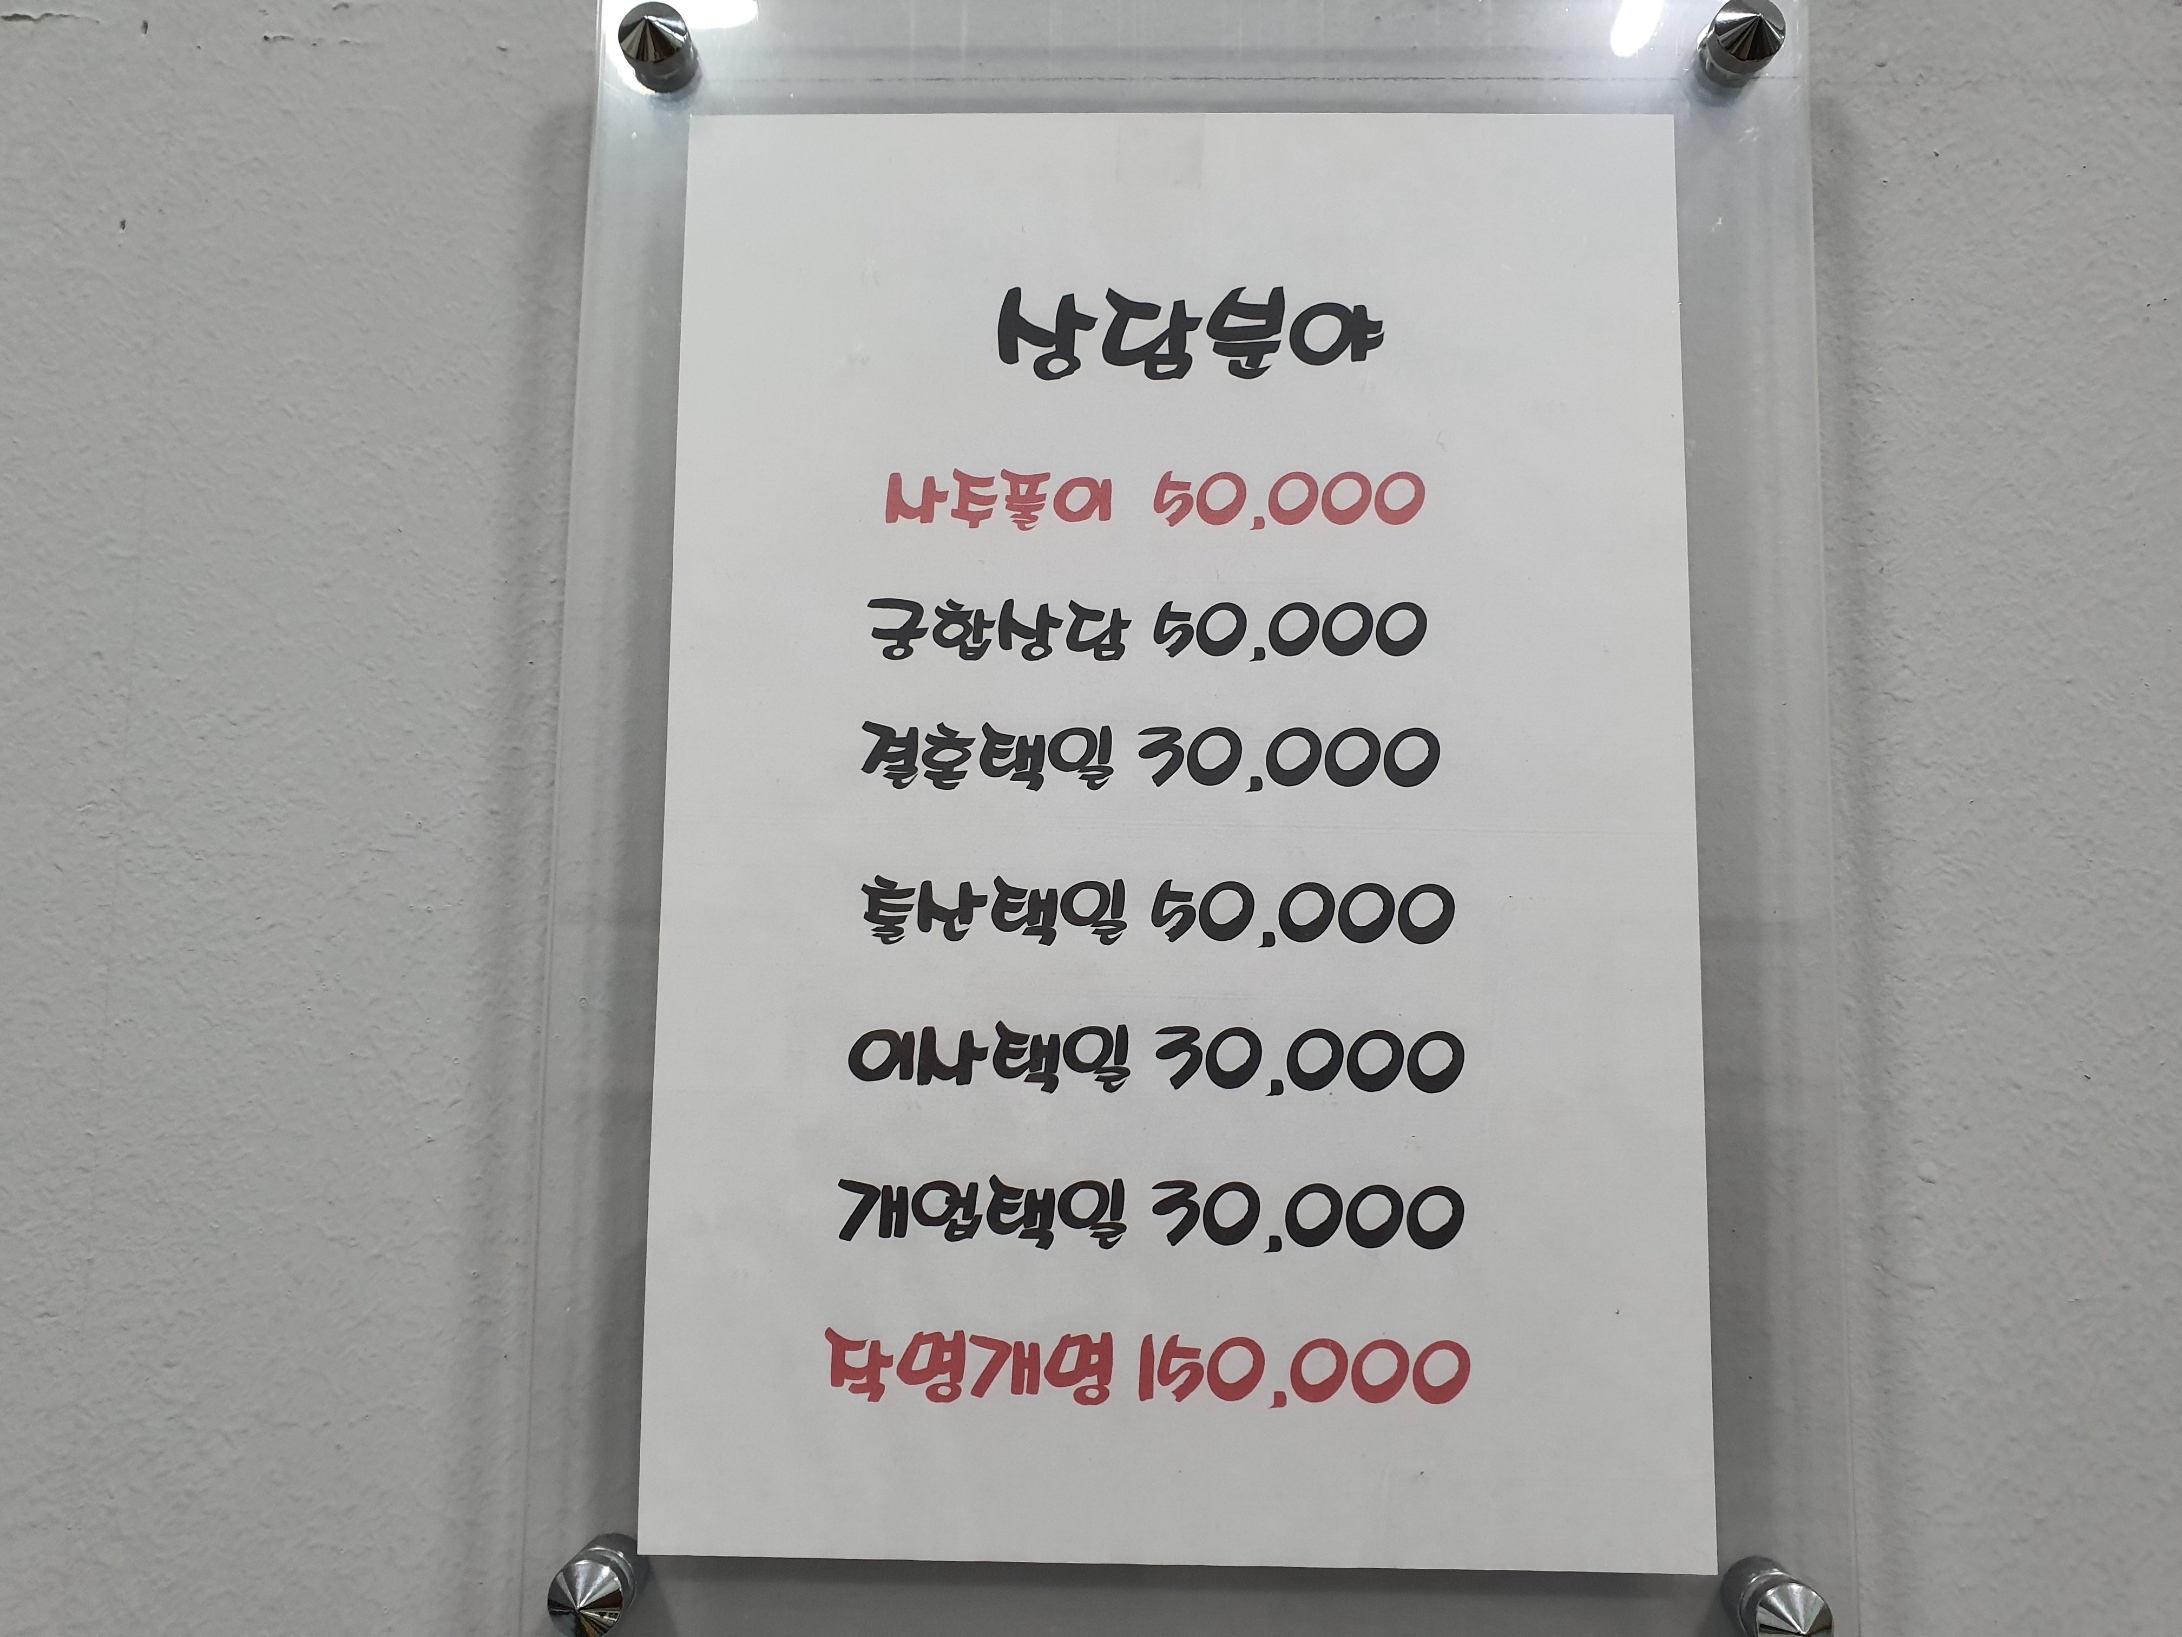 상담분야
사주풀이 50,000
궁합상담 50,000
결혼택일 30,000
출산택일 50,000
이사택일 30,000
개업택일 30,000
작명개명 150,000